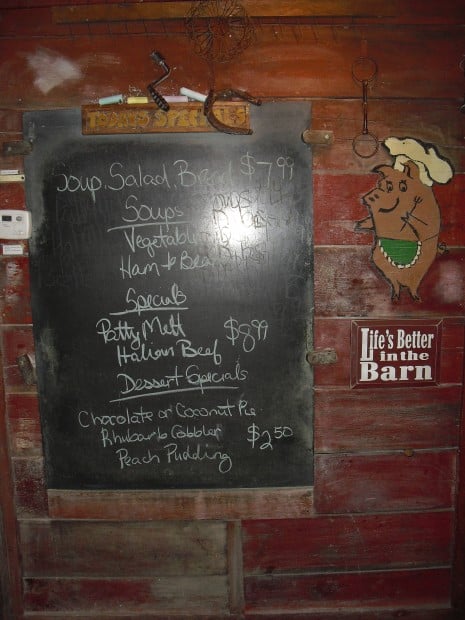 TODAY'S SPECIALS
Soup, Salad, Bread $7.99
Soups
Vegetable
Ham & Bean
Specials
Patty Melt $8.99
Italian Beef
Dessert Specials
Chocolate or Coconut Pie
Rhubarb Cobbler $2.50
Peach Pudding
Life's Better
in the
Barn